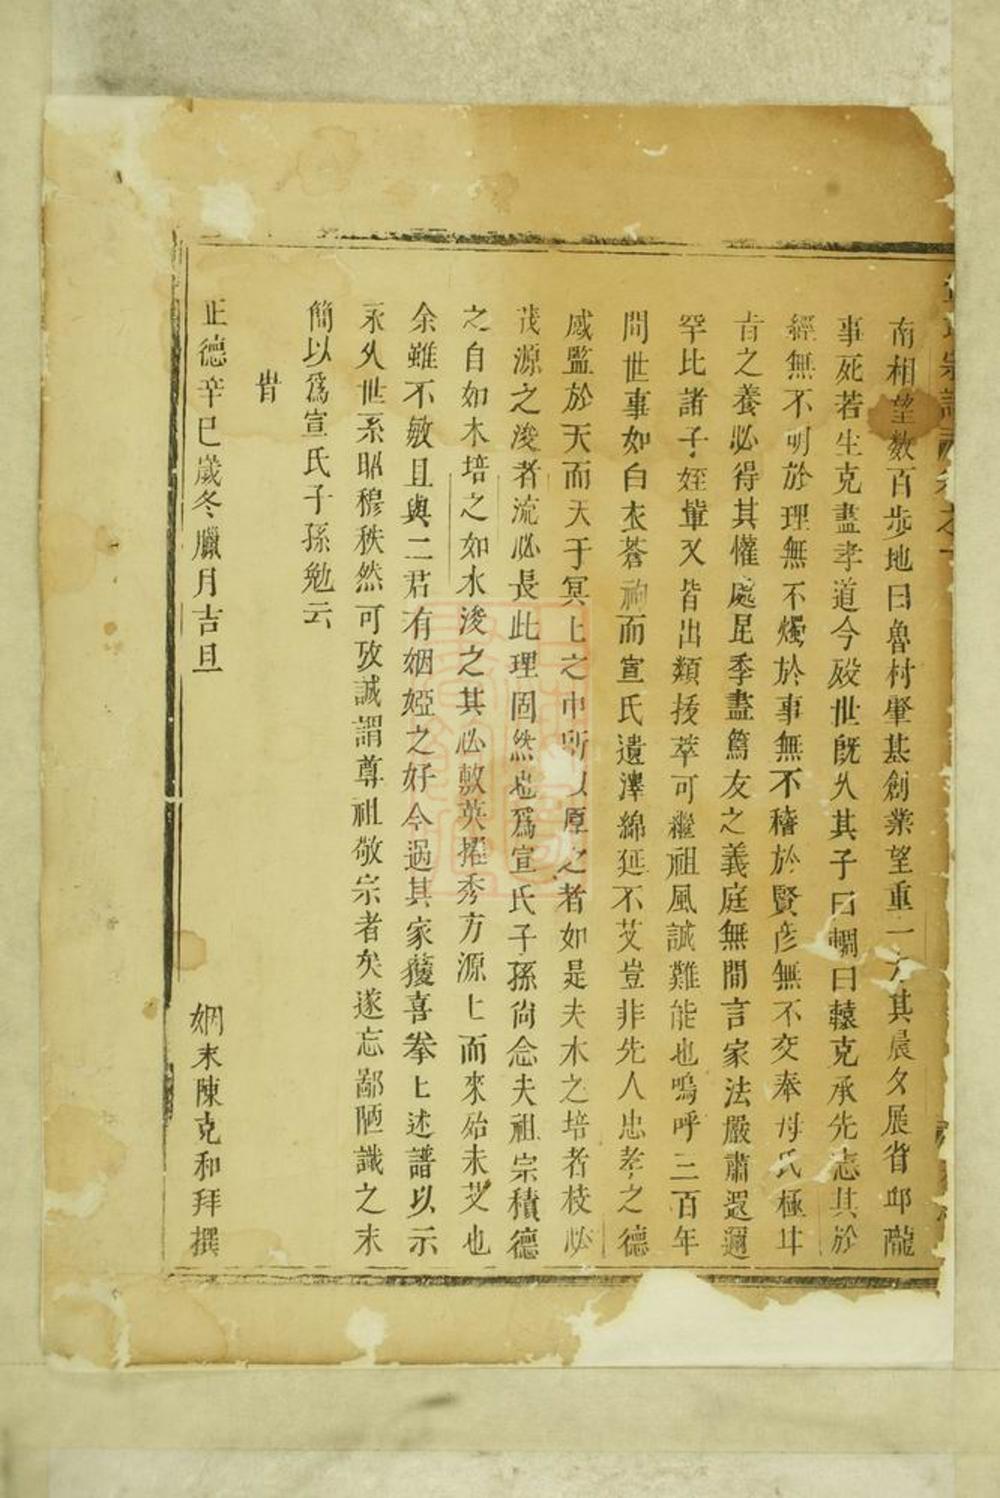 南相望数百步地曰魯村肇基創業望重一方其晨夕展省邱隴
事死若生克盡孝道今殁世旣久其子曰輖曰轅克承先志其於
經無不明於理無不燭於事無不稽於賢彥無不交奉母氏極甘
旨之養必得其懽處昆季盡篤友之義庭無間言家法嚴肅遐邇
罕比諸子姪輩又皆出類㧞萃可繼祖風誠難能也嗚呼三百年
間世事如白衣蒼狗而宣氏遺澤綿延不艾豈非先人忠孝之德
感監於天而天于冥上之中所以厚之者如是夫木之培者枝必
茂源之浚者流必長此理固然也爲宣氏子孫尙念夫祖宗積德
之自如木培之如水浚之其必敷英擢秀方源上而來殆未艾也
余雖不敏且與二君有姻婭之好今過其家蒦喜拳上述譜以示
永久世系昭穆秩然可攷誠謂尊祖敬宗者矣遂忘鄙陋識之末
簡以爲宣氏子孫勉云
旹
正德辛巳嵗冬臘月吉旦　姻末陳克和拜撰